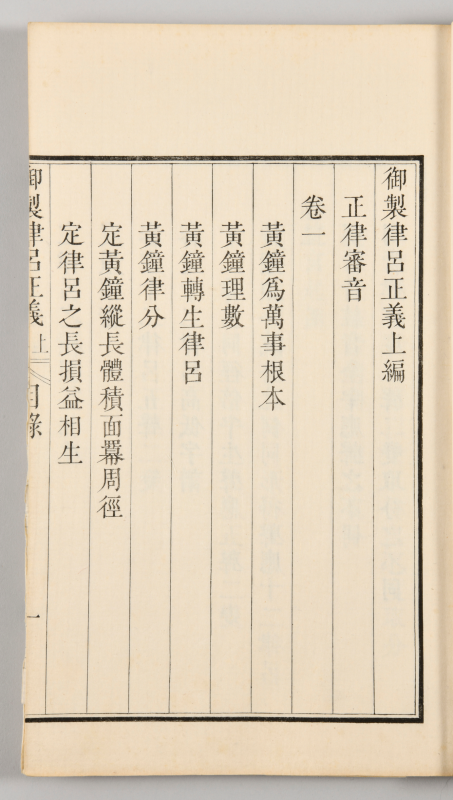 御製律呂正義上編
正律審音
卷一
黃鐘爲萬事根本
黃鐘理數
黃鐘轉生律呂
黃鐘律分
定黃鐘縱長體積面羃周徑
定律呂之長損益相生
御製律呂正義上 目錄 一